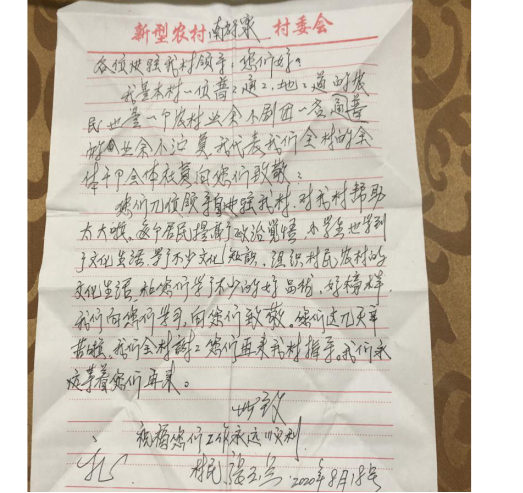 新型农村 南胡家 村委会
各位进驻我村领导,您们好。
我是本村一位普普通通、地地道的农
民也是一个农村业余小剧团一名普普
的业余小演员我代表我们全村的全
体干户全体社员向您们致敬:
您们几位领导自进驻我村,对我村帮助
太大啦。每个居民提高了政治觉悟,小学生也学到
了文化生活,学了不少文化知识,组织村民农村的
文化生活,和您们学了不少的好品格,好榜样,
我们向您们学习,向您们致敬。您们这几天辛
苦啦,我们全村谢谢您们再来我村指导。我们永
等着您们再来。
此致
祝福您们工作永远顺利
礼
村民 张玉兰 2020年8月18号